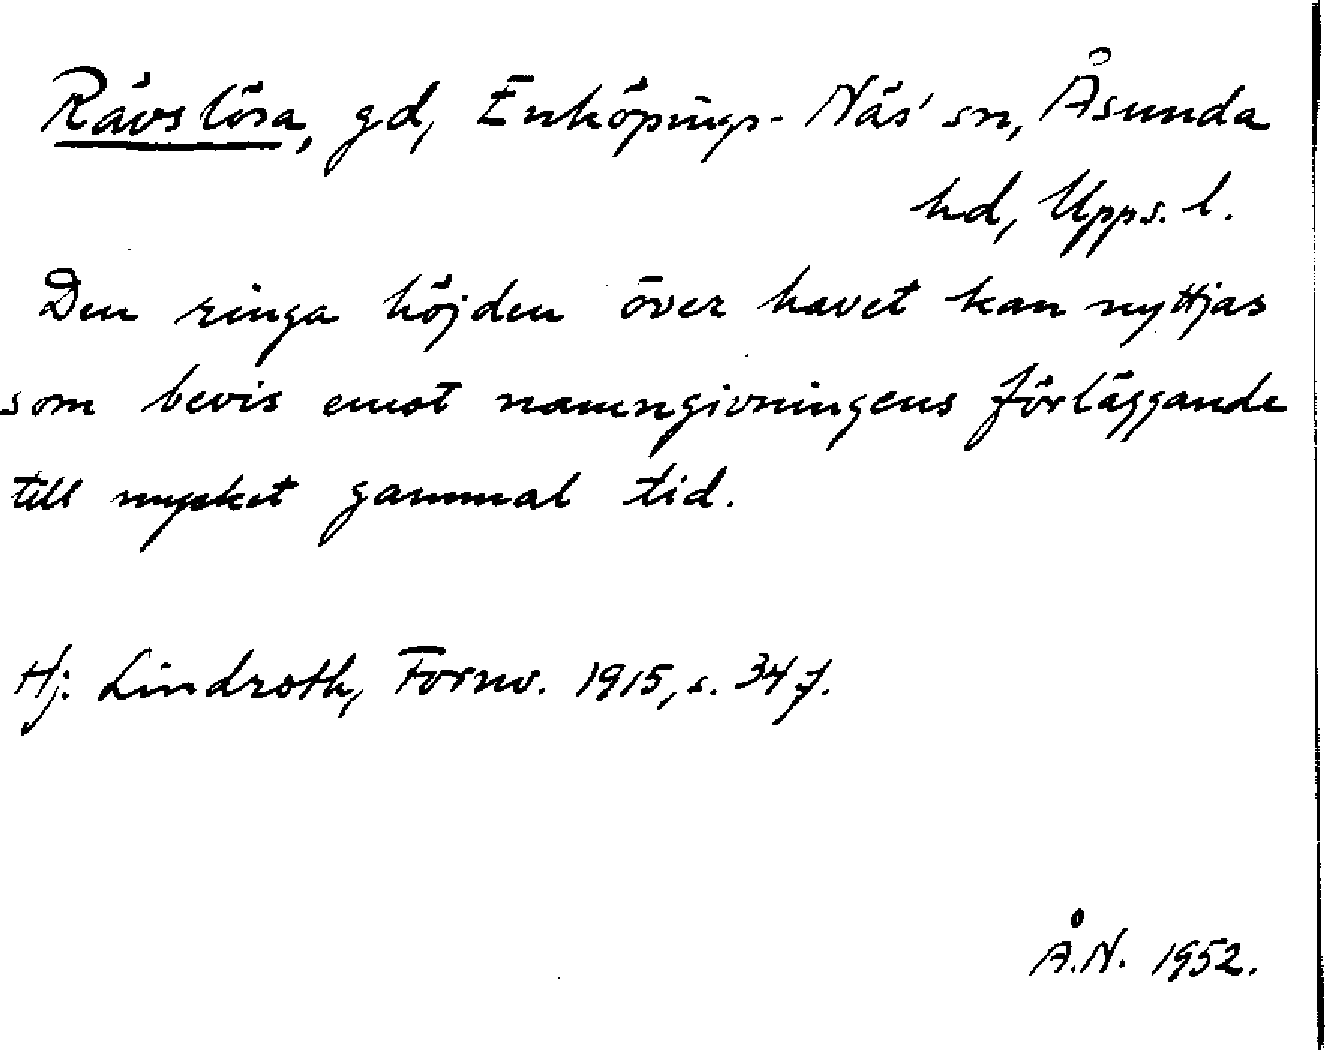 Rävslösa, gd, Enköpings-Näs' sn, Åsunda
hd, Upps. l.
Den ringa höjden över havet kan nyttjas
som bevis emot namngivningens förläggande
till mycket gammal tid.
Hj. Lindroth, Fornv. 1915, s. 34 f.
Å.N. 1952.